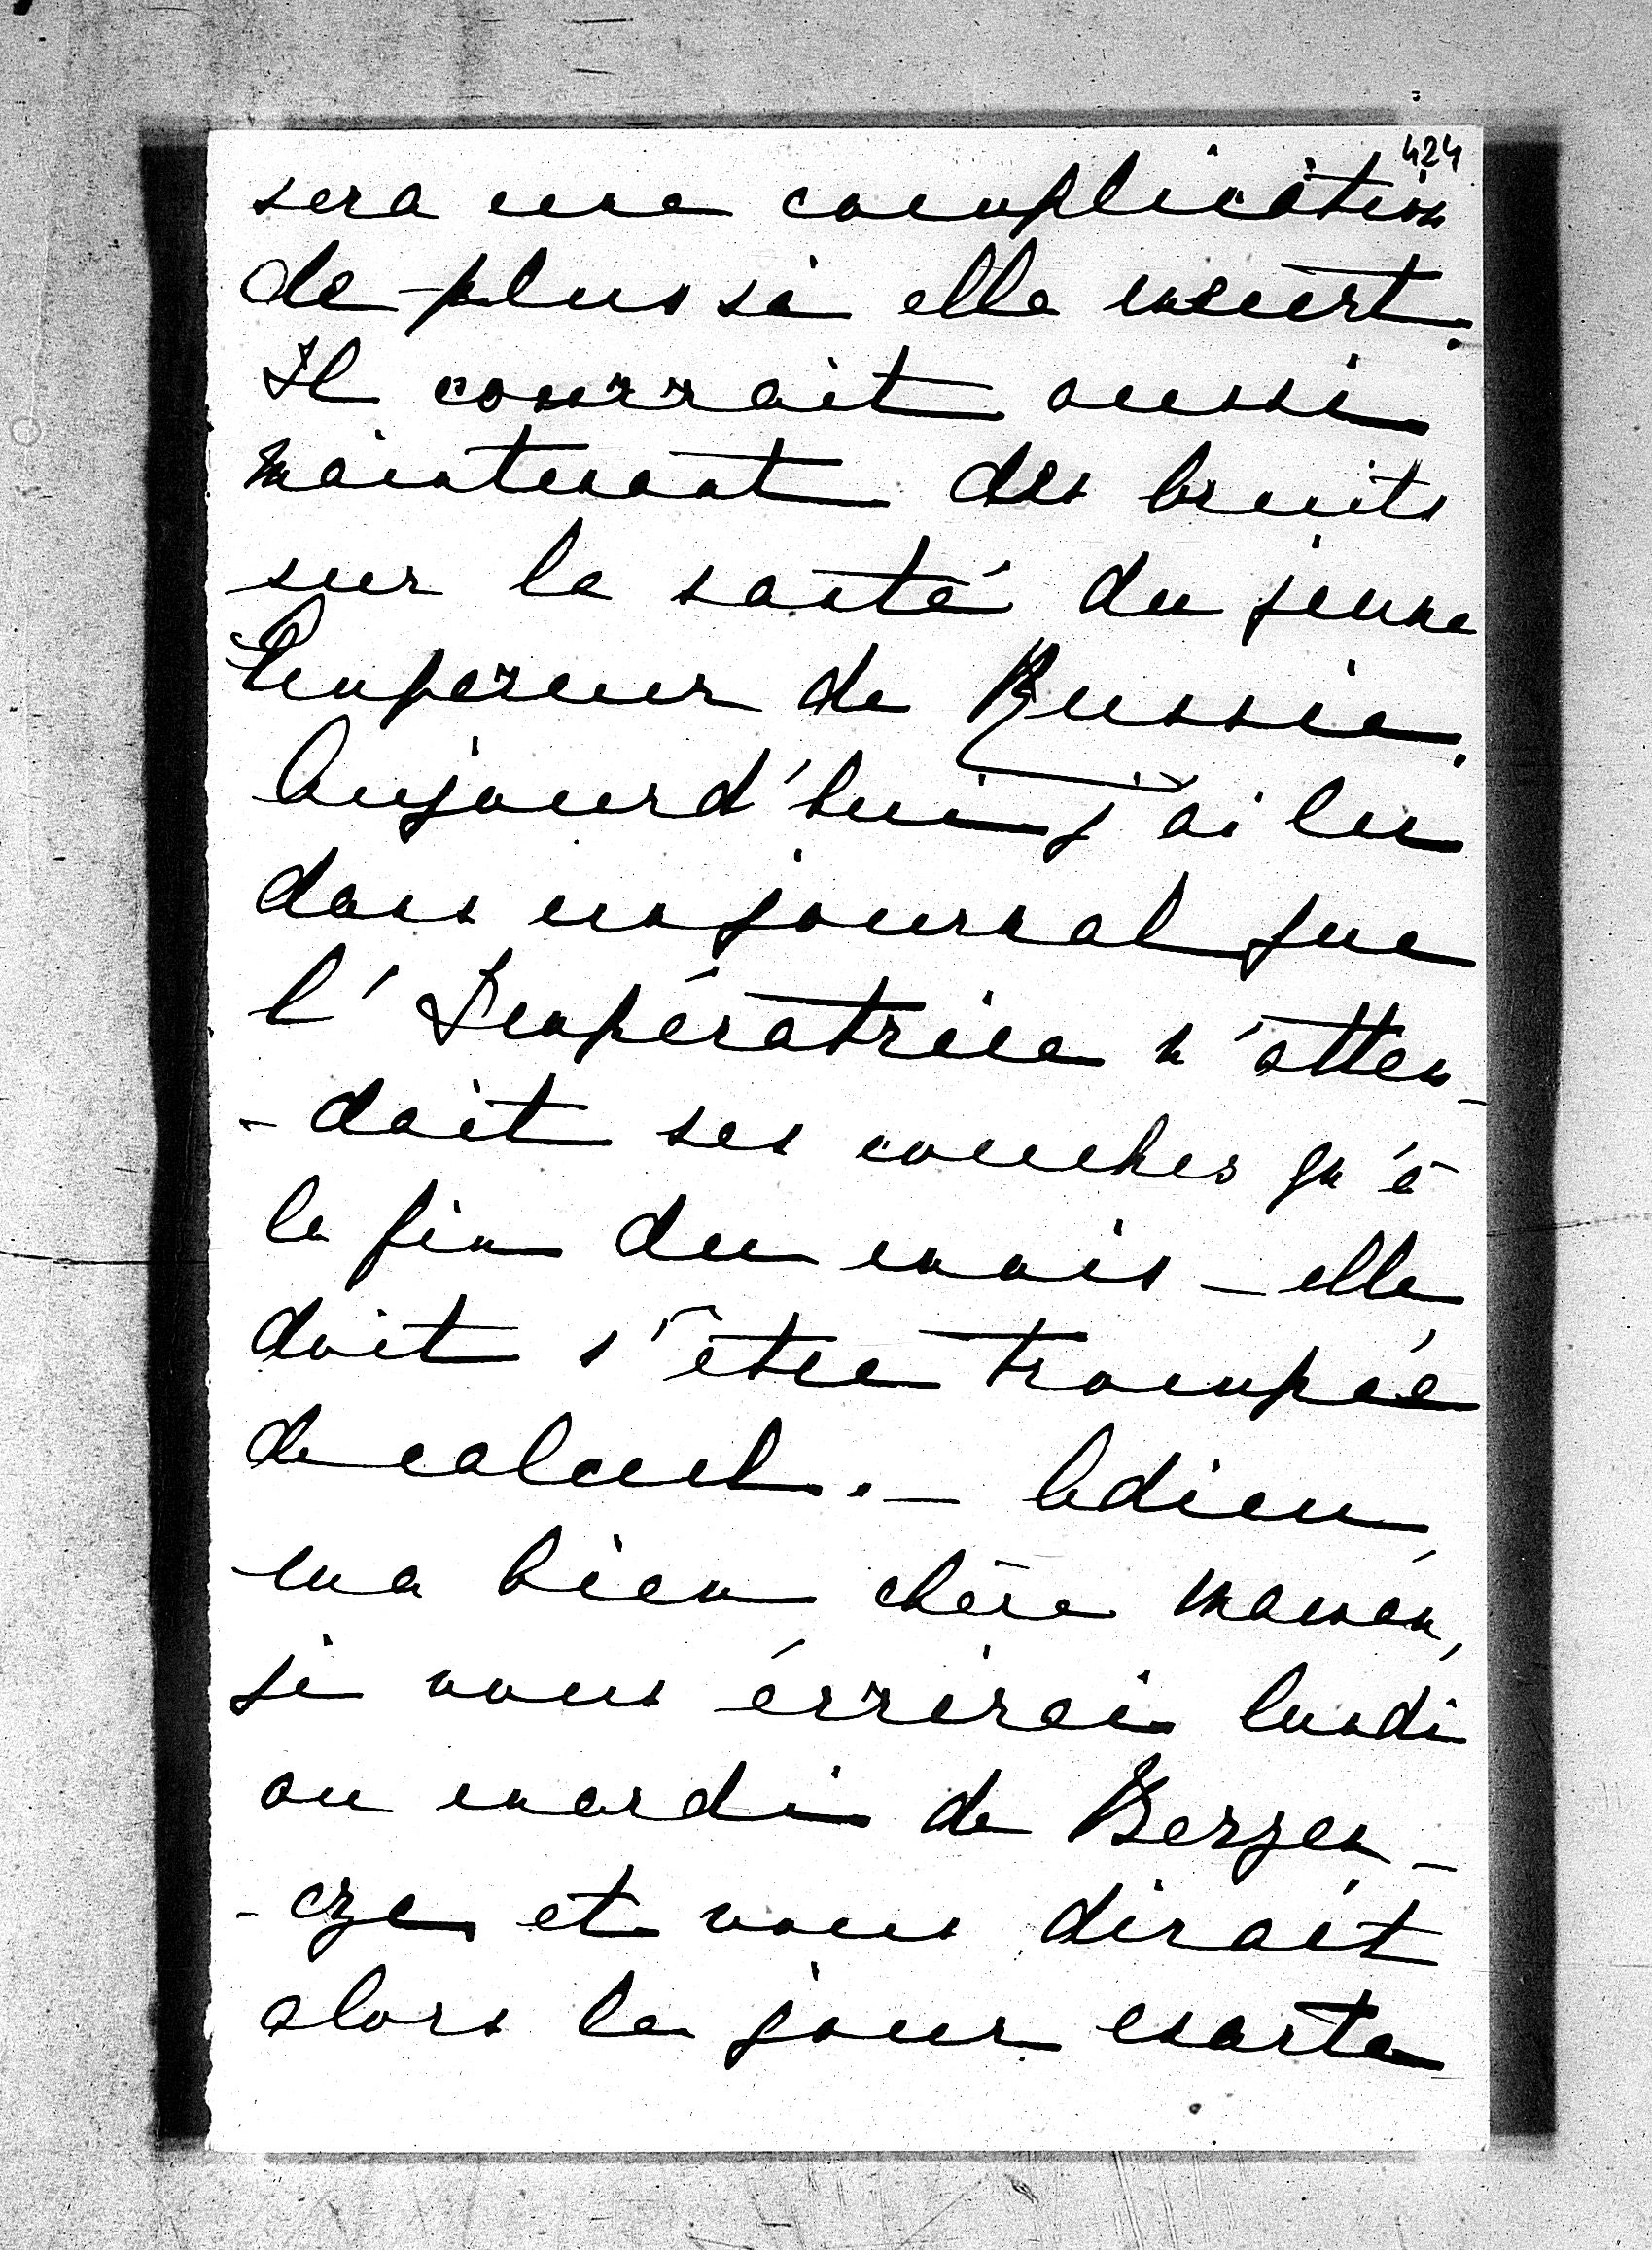 424
sera une complication
de plus si elle meurt.
Il courrait aussi
maintenant des bruits
sur la santé du jeune
Empereur de Russie.
Aujourd'hui j'ai lu
dans un journal que
l'Impératrice n'atten-
-dait ses couches qu'à
la fin du mois - elle
doit s'être trompée
de calcul. - Adieu
ma bien chère maman,
je vous écrirai lundi
ou mardi de Berzen-
-cze et vous dirait
alors le jour exacte